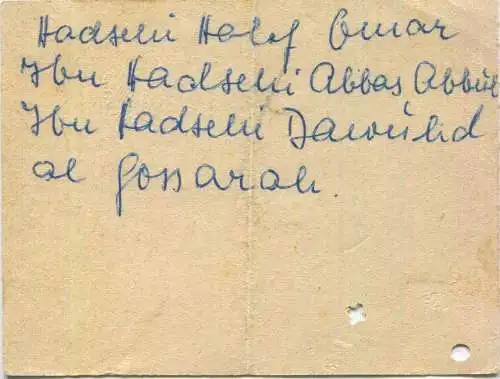 Hadschi Halef Omar
Ibn Hadschi Abbas Abbul
Ibn Hadschi Dawuhd
al Gossarah.